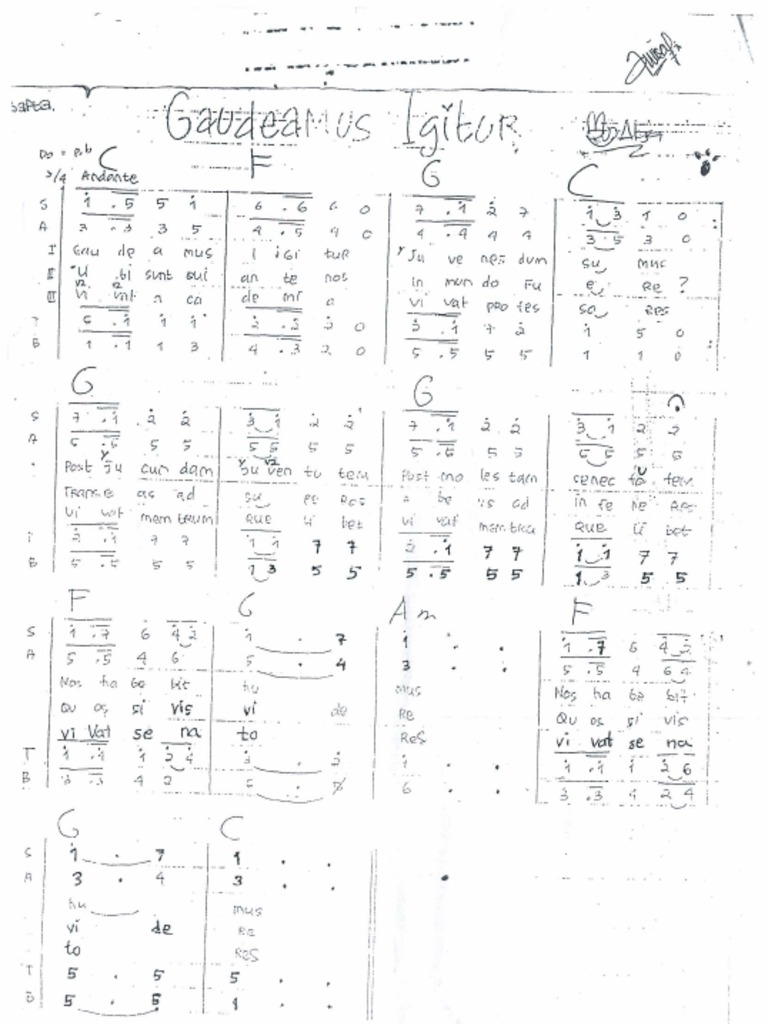 Gaudeamus Igitur
3/4 Andante
C F G C
S 1 .5 5 1 6 .6 6 0 7 .1 2 7 1 3 1 0 :
A 3 .3 3 5 4 .5 4 0 4 .4 4 4 3 5 3 0
I Gau de a mus I igi tur Ju ve nes dum su mus
II U bi sunt qui an te nos in mun do Fu e Re ?
III Vi vat a ca de mi a vi vat pro fes so Res
T 5 .1 1 1 2 .2 2 0 2 .1 7 2 1 5 0
B 1 .1 1 3 4 .3 2 0 5 .5 5 5 1 1 0 :
G G
S 7 .1 2 2 3 1 2 2 7 .1 2 2 3 1 2 2
A 5 .5 5 5 5 5 5 5 5 .5 5 5 5 5 5 5
Post Ju cun dam Ju ven tu tem Post mo les tam senec tu tem
Trans e as ad su pe Res a be is ad in fe Re Res
vi vat mem brum que li bet vi vat mem bra que li bet
T 2 .1 7 7 1 1 7 7 2 .1 7 7 1 1 7 7
B 5 .5 5 5 1 3 5 5 5 .5 5 5 1 3 5 5
F G Am F
S 1 .7 6 4 2 1 . 7 1 . . 1 .7 6 4 2
A 5 .5 4 6 5 . 4 3 . . 5 .5 4 6 4
Nos ha be bit hu mus Nos ha be bit
Qu os si vis vi de Re Qu os si vis
vi vat se na to Res vi vat se na
T 1 .1 1 2 4 2 . 2 1 . . 1 .1 1 2 6
B 3 .3 4 2 5 . 5 6 . . 3 .3 4 2 4
G C
S 1 . 7 1 . .
A 3 . 4 3 . .
hu mus
vi de Re
to Res
T 5 . 5 5 . .
B 5 . 5 1 . .